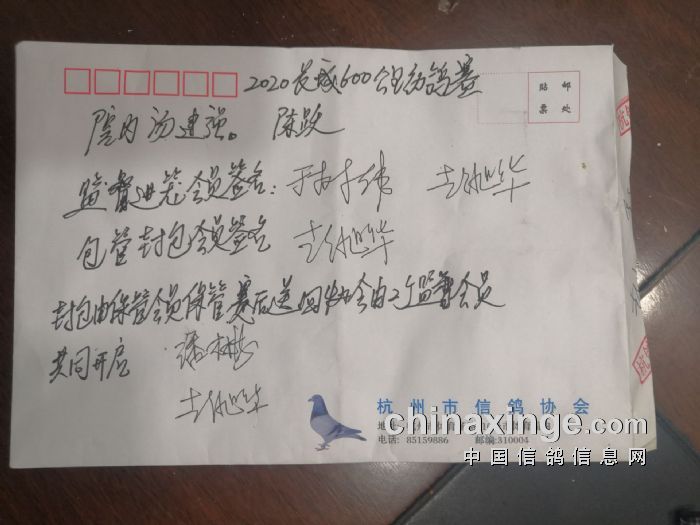 2020长城600公里幼鸽赛
贴 邮
票 处
院内汤建强。 陈跃
监督进笼会员签名:
包管封包会员签名
封包由保管会员保管赛后送回协会由2个监督会员
共同开启
杭州市信鸽协会
电话: 85159886 邮编:310004
chinaxinge.com
中国信鸽信息网